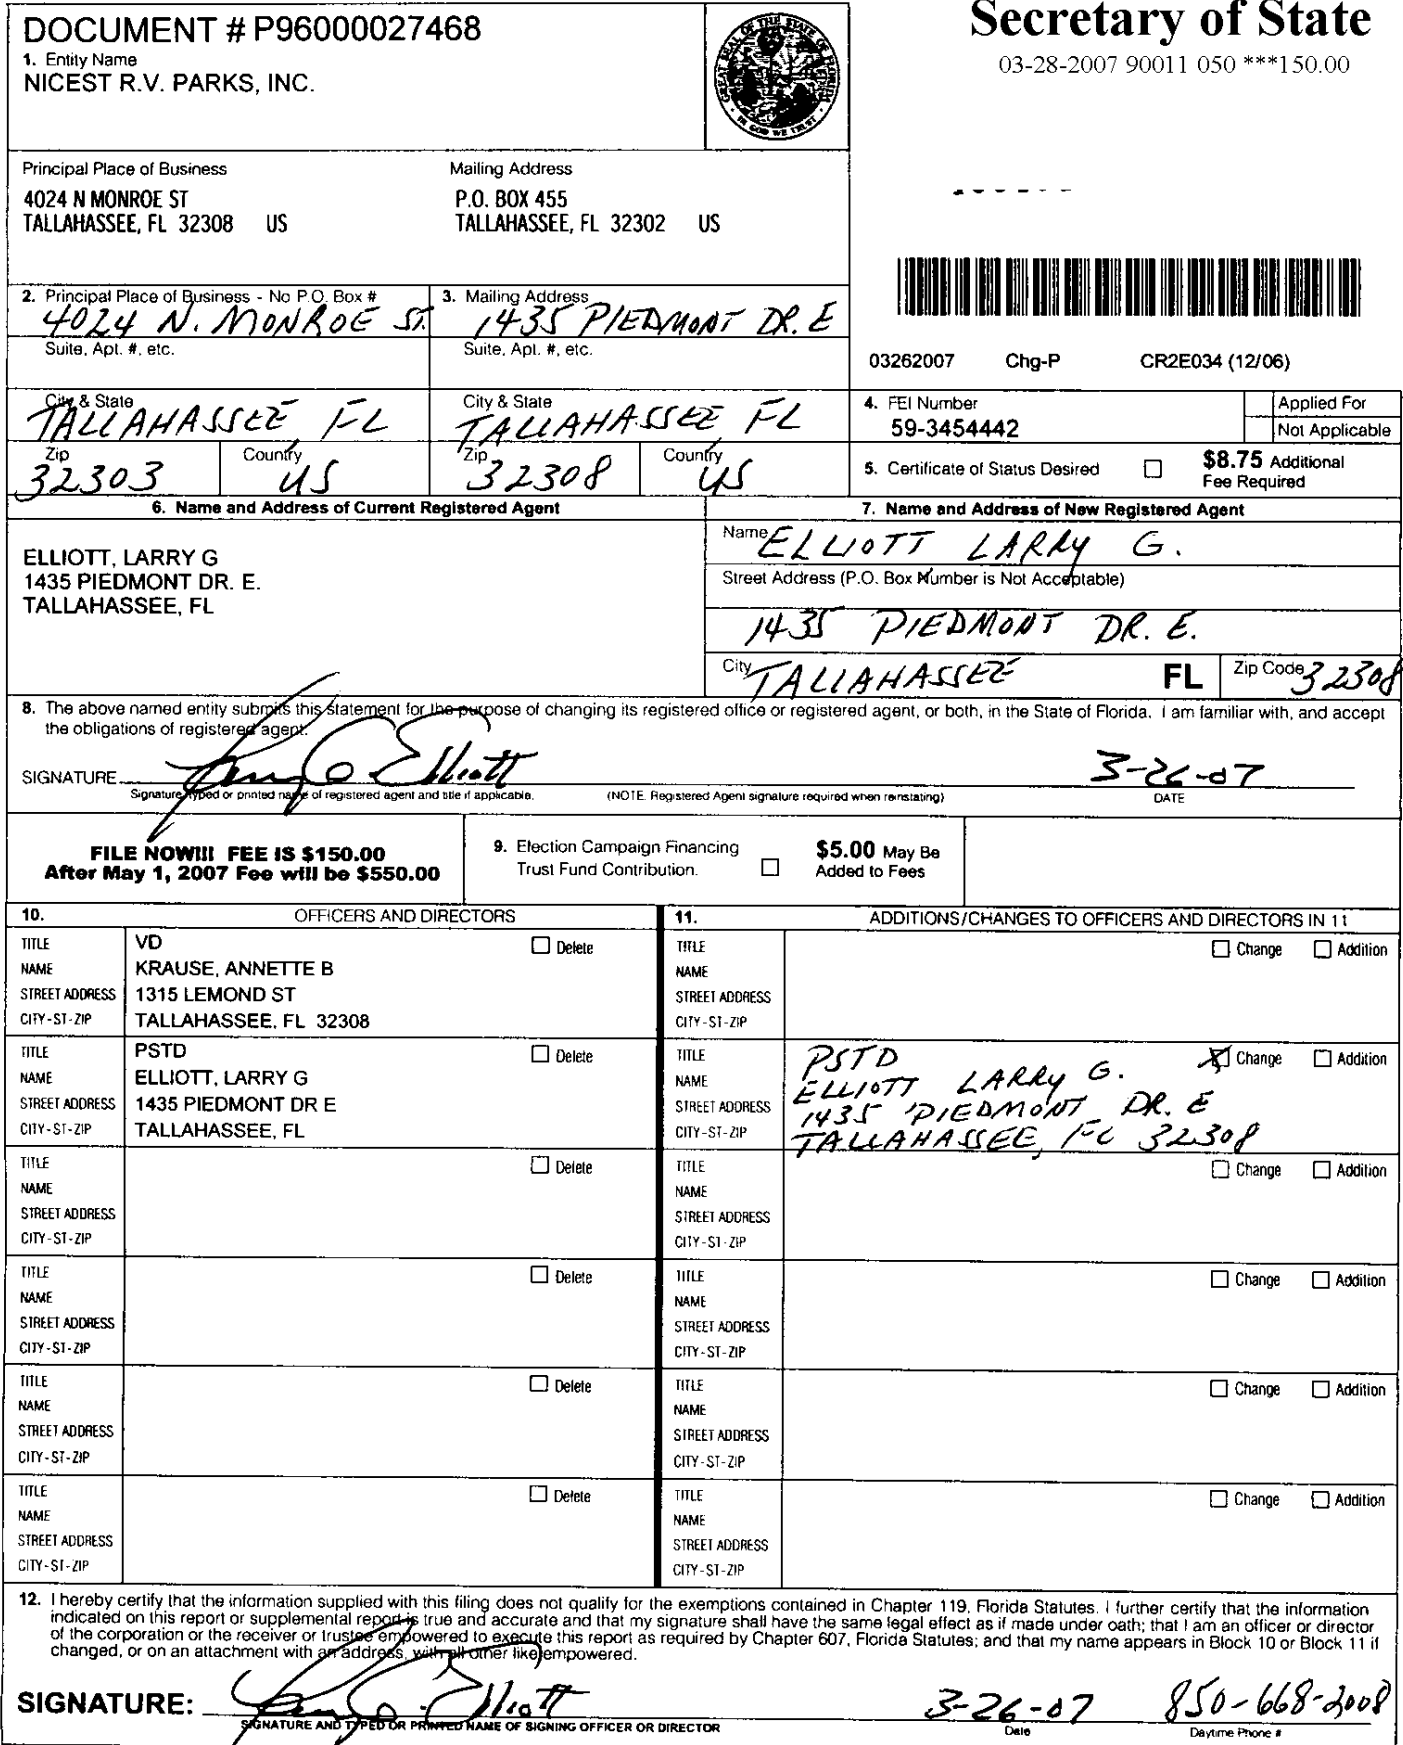 DOCUMENT # P96000027468
1. Entity Name
NICEST R.V. PARKS, INC.
GREAT SEAL OF THE STATE OF FLORIDA
IN GOD WE TRUST
Secretary of State
03-28-2007 90011 050 ***150.00
Principal Place of Business
4024 N MONROE ST
TALLAHASSEE, FL 32308 US
Mailing Address
P.O. BOX 455
TALLAHASSEE, FL 32302 US
2. Principal Place of Business - No P.O. Box #
4024 N. MONROE ST.
Suite, Apt. #, etc.
City & State
TALLAHASSEE FL
Zip
32303
Country
US
3. Mailing Address
1435 PIEDMONT DR. E
Suite, Apt. #, etc.
City & State
TALLAHASSEE FL
Zip
32308
Country
US
03262007 Chg-P CR2E034 (12/06)
4. FEI Number
59-3454442
Applied For
Not Applicable
5. Certificate of Status Desired
$8.75 Additional
Fee Required
6. Name and Address of Current Registered Agent
ELLIOTT, LARRY G
1435 PIEDMONT DR. E.
TALLAHASSEE, FL
7. Name and Address of New Registered Agent
Name ELLIOTT LARRY G.
Street Address (P.O. Box Number is Not Acceptable)
1435 PIEDMONT DR. E.
City TALLAHASSEE FL Zip Code 32308
8. The above named entity submits this statement for the purpose of changing its registered office or registered agent, or both, in the State of Florida. I am familiar with, and accept
the obligations of registered agent.
SIGNATURE Larry G Elliott 3-26-07
Signature, typed or printed name of registered agent and title if applicable. (NOTE: Registered Agent signature required when reinstating) DATE
FILE NOW!!! FEE IS $150.00
After May 1, 2007 Fee will be $550.00
9. Election Campaign Financing
Trust Fund Contribution.
$5.00 May Be
Added to Fees
10. OFFICERS AND DIRECTORS
TITLE VD Delete
NAME KRAUSE, ANNETTE B
STREET ADDRESS 1315 LEMOND ST
CITY-ST-ZIP TALLAHASSEE, FL 32308
TITLE PSTD Delete
NAME ELLIOTT, LARRY G
STREET ADDRESS 1435 PIEDMONT DR E
CITY-ST-ZIP TALLAHASSEE, FL
TITLE Delete
NAME
STREET ADDRESS
CITY-ST-ZIP
TITLE Delete
NAME
STREET ADDRESS
CITY-ST-ZIP
TITLE Delete
NAME
STREET ADDRESS
CITY-ST-ZIP
TITLE Delete
NAME
STREET ADDRESS
CITY-ST-ZIP
11. ADDITIONS/CHANGES TO OFFICERS AND DIRECTORS IN 11
TITLE Change Addition
NAME
STREET ADDRESS
CITY-ST-ZIP
TITLE PSTD X Change Addition
NAME ELLIOTT LARRY G.
STREET ADDRESS 1435 PIEDMONT DR. E
CITY-ST-ZIP TALLAHASSEE, FL 32308
TITLE Change Addition
NAME
STREET ADDRESS
CITY-ST-ZIP
TITLE Change Addition
NAME
STREET ADDRESS
CITY-ST-ZIP
TITLE Change Addition
NAME
STREET ADDRESS
CITY-ST-ZIP
TITLE Change Addition
NAME
STREET ADDRESS
CITY-ST-ZIP
12. I hereby certify that the information supplied with this filing does not qualify for the exemptions contained in Chapter 119, Florida Statutes. I further certify that the information
indicated on this report or supplemental report is true and accurate and that my signature shall have the same legal effect as if made under oath; that I am an officer or director
of the corporation or the receiver or trustee empowered to execute this report as required by Chapter 607, Florida Statutes; and that my name appears in Block 10 or Block 11 if
changed, or on an attachment with an address, with all other like empowered.
SIGNATURE: Larry G Elliott 3-26-07 850-668-2008
SIGNATURE AND TYPED OR PRINTED NAME OF SIGNING OFFICER OR DIRECTOR Date Daytime Phone #